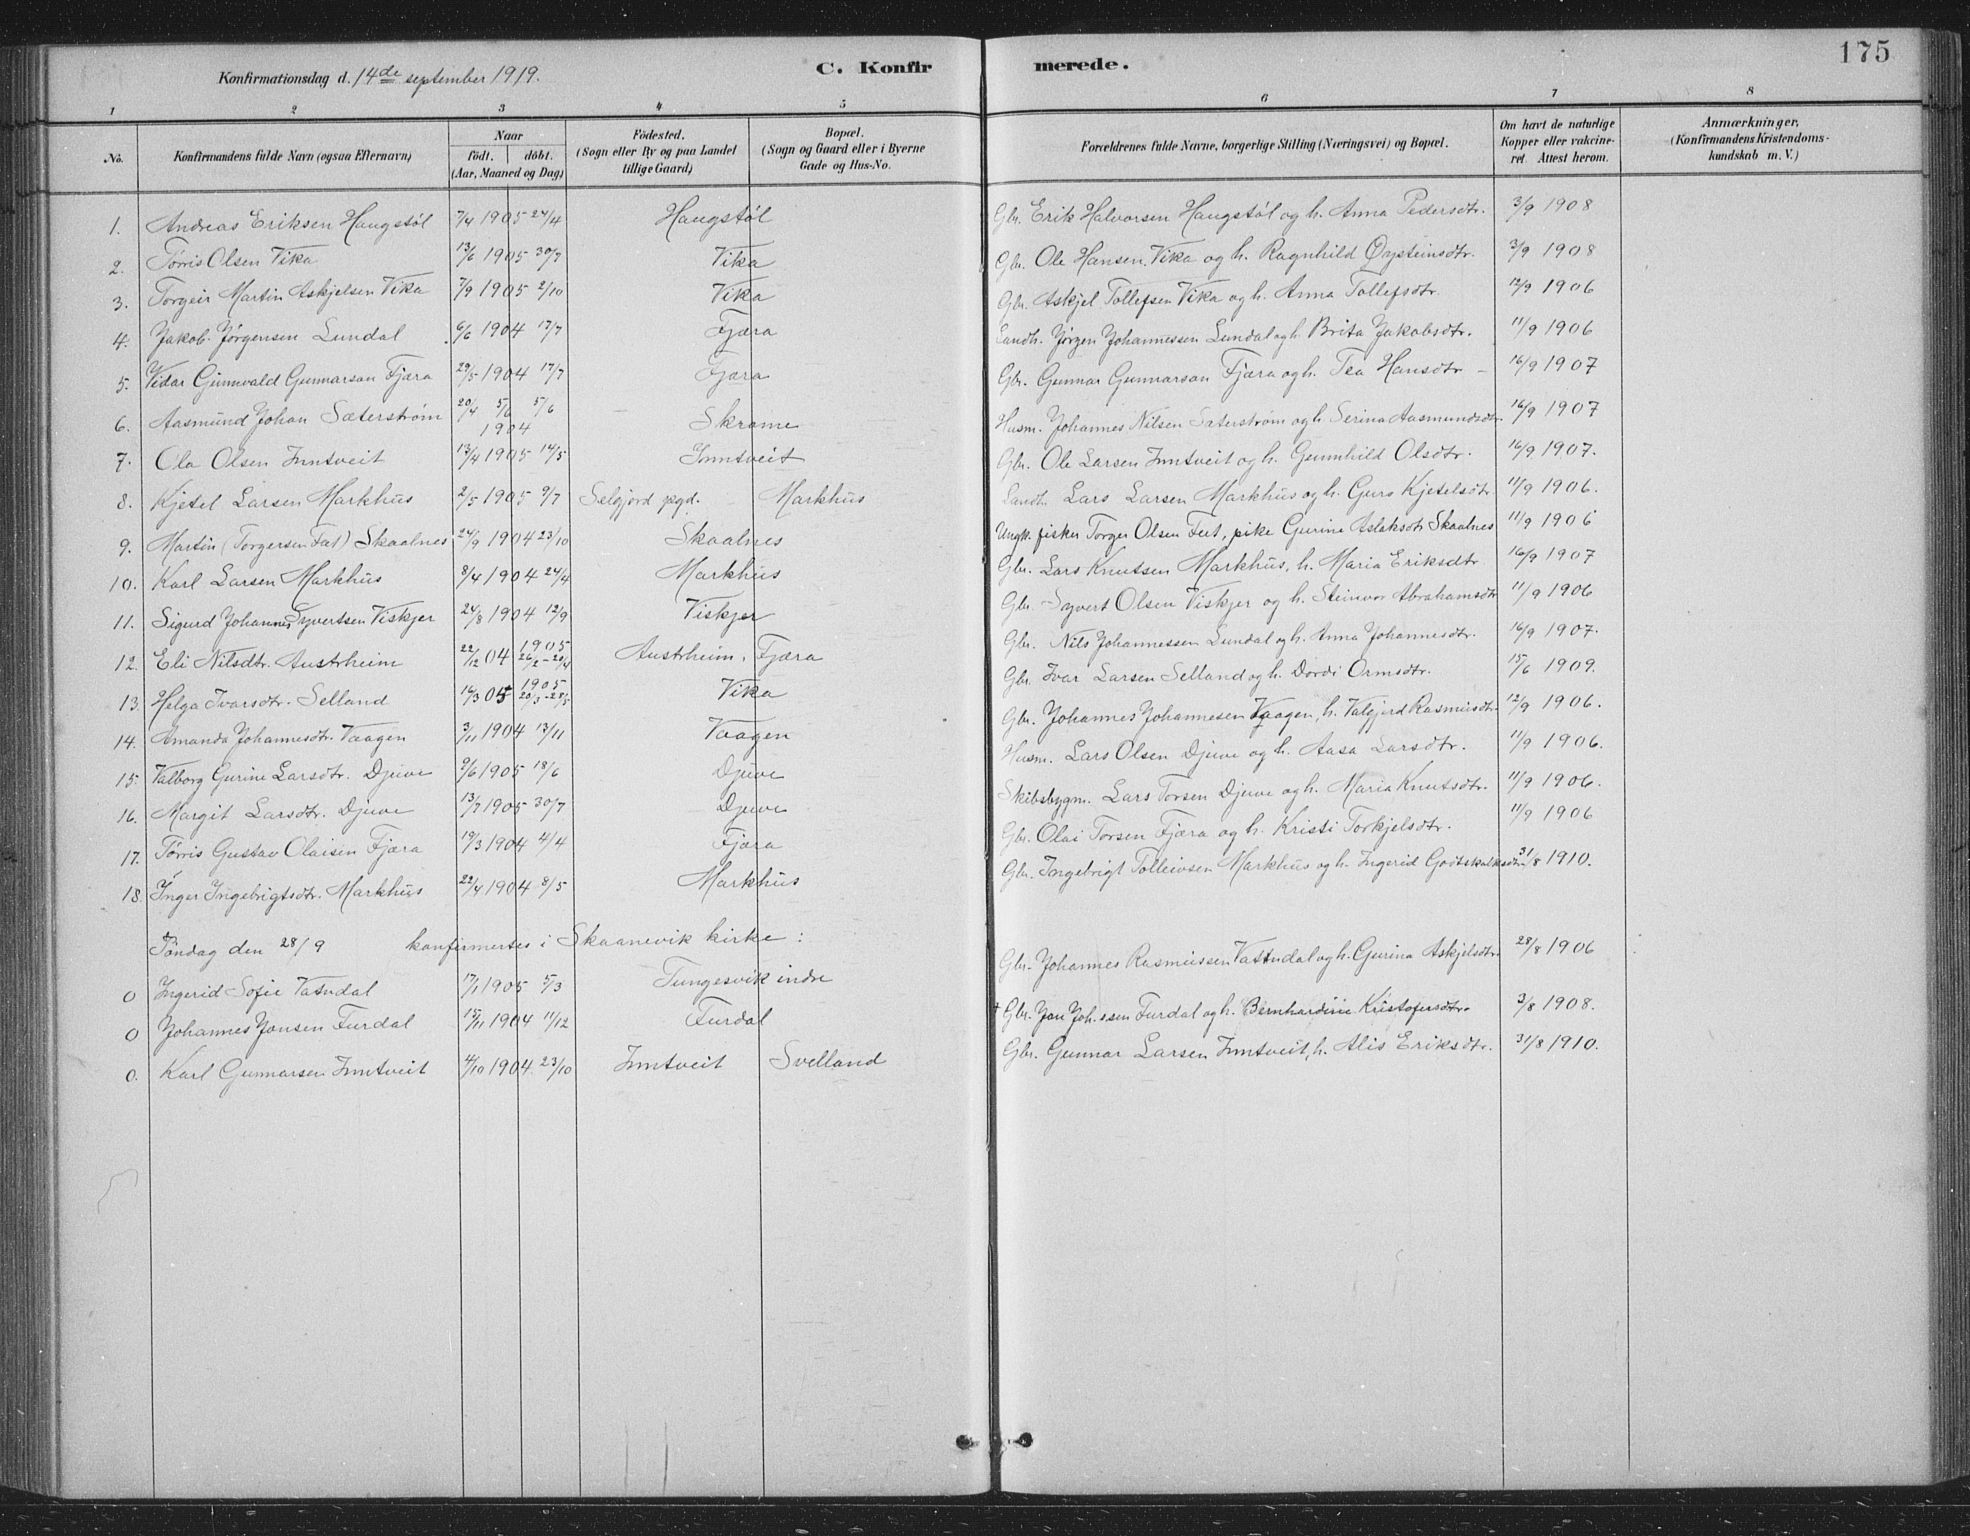 175
Konfirmationsdag d. 14de september 1919. C. Konfirmerede.
1 2 3 4 5 6 7 8
No. Konfirmandens fulde Navn (ogsaa Efternavn) Naar födt. döbt. (Aar, Maaned og Dag) Födested. (Sogn eller By og paa Landet tillige Gaard) Bopæl. (Sogn og Gaard eller i Byerne Gade og Hus-No. Forældrenes fulde Navne, borgerlige Stilling (Næringsvei) og Bopæl. Om havt de naturlige Kopper eller vakcineret. Attest herom. Anmærkninger, (Konfirmandens Kristendomskundskab m. V.)
1. Andreas Eriksen Haugstøl 7/4 1905 24/4 Haugstøl Gbr. Erik Halvorsen Haugstøl og h. Anna Pedersdtr. 3/9 1908
2. Tørris Olsen Vika 13/6 1905 30/7 Vika Gbr. Ole Hansen Vika og h. Ragnhild Øysteinsdtr. 3/9 1908
3. Torgeir Martin Askjelsen Vika 7/9 1905 2/10 Vika Gbr. Askjel Tollefsen Vika og h. Anna Tollefsdtr. 12/9 1906
4. Jakob Jørgensen Lundal 6/6 1904 17/7 Fjæra Landh. Jørgen Johannessen Lundal og h. Brita Jakobsdtr. 11/9 1906
5. Vidar Gunnvald Gunnarson Fjæra 29/5 1904 17/7 Fjæra Gbr. Gunnar Gunnarson Fjæra og h. Tea Hansdtr - 16/9 1907
6. Aasmund Johan Sæterstrøm 20/4 5/6 5/6 1904 Skrome Husm. Johannes Nilsen Sæterstrøm og h. Serina Aasmundsdtr 16/9 1907
7. Ola Olsen Inntveit 13/4 1905 14/5 Inntveit Gbr. Ole Larsen Inntveit og h. Gunnhild Olsdtr. 16/9 1907.
8. Kjetel Larsen Markhus 2/5 1905 9/7 Selgjord pgd. Markhus Landh. Lars Larsen Markhus og h. Guro Kjetelsdtr 11/9 1906.
9. Martin (Torgersen Fet) Skaalnes 24/9 1904 23/10 Skaalnes Ungk. fisker Torger Olsen Fet, pike Gurine Aslaksdtr Skaalnes 11/9 1906
10. Karl Larsen Markhus 8/4 1904 24/4 Markhus Gbr. Lars Knutsen Markhus, h. Maria Eriksdtr 16/9 1907
11. Sigurd Johannes Syvertsen Viskjer 24/8 1904 12/9 Viskjer Gbr. Syvert Olsen Viskjer og h. Steinvor Abrahamsdtr 11/9 1906
12. Eli Nilsdtr. Austrheim 22/12 04 1905 26/2 - 20/4 Austrheim, Fjæra Gbr. Nils Johannessen Lundal og h. Anna Johannesdtr. 16/9 1907.
13. Helga Ivarsdtr. Selland 16/3 05 1905 20/3 - 28/5 Vika Gbr. Ivar Larsen Selland og h. Dordi Ormsdtr. 15/6 1909.
14. Amanda Johannesdtr. Vaagen 3/11 1904 13/11 Vaagen Gbr. Johannes Johannesen Vaagen, h. Valgjerd Rasmusdtr. 12/9 1906.
15. Valborg Gurine Larsdtr. Djuve 9/6 1905 18/6 Djuve Husm. Lars Olsen Djuve og h. Aasa Larsdtr. 11/9 1906.
16. Margit Larsdtr. Djuve 13/7 1905 30/7 Djuve Skibsbygm. Lars Torsen Djuve og h. Maria Knutsdtr. 11/9 1906.
17. Tørris Gustav Olaisen Fjæra 19/3 1904 4/4 Fjæra Gbr. Olai Torsen Fjæra og h. Kristi Torkjelsdtr. 11/9 1906
18. Inger Ingebrigtsdtr. Markhus 22/4 1904 8/5 Markhus Gbr. Ingebrigt Tolleivsen Markhus og h. Ingerid Godtskalksdtr. 31/8 1910.
Søndag den 28/9 konfirmertes i Skaanevik kirke:
0 Ingerid Sofie Vatndal 17/1 1905 5/3 Tungesvik indre Gbr. Johannes Rasmussen Vatndal og h. Gurina Askjelsdtr. 28/8 1906
0 Johannes Jonsen Furdal 15/11 1904 11/12 Furdal + Gbr. Jon Joh.ssen Furdal og h. Bernhardine Kristofersdtr. 3/8 1908.
0. Karl Gunnarsen Inntveit 4/10 1904 23/10 Inntveit Svelland Gbr. Gunnar Larsen Inntveit, h. Alis Eriksdtr. 31/8 1910.